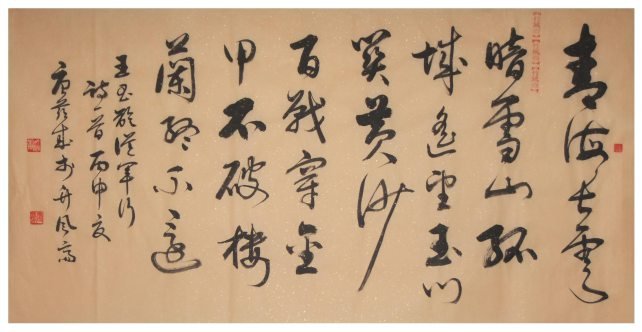 青海长雲
暗雪山孤
城遥望玉门
关黄沙
百戰穿金
甲不破楼
蘭终不還
王昌龄從軍行
诗一首丙申夏